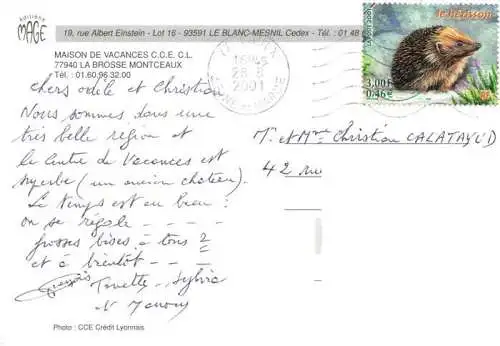 éditions
MAGE
19, rue Albert Einstein - Lot 16 - 93591 LE BLANC-MESNIL Cedex - Tél. : 01 48
MAISON DE VACANCES C.C.E. C.L.
77940 LA BROSSE MONTCEAUX
Tél. : 01.60.96.32.00
chers odile et Christian
Nous sommes dans une
très belle région et
le Centre de Vacances est
superbe (un ancien chateau).
Le temps est au beau :
on se régale - - - -
grosses bises à tous 2
et à bientôt - -
Ginette - Sylvie
Photo : CCE Crédit Lyonnais
le hérisson
3,00F
0,46€
28 8
2001
SEINE ET MARNE
M. et Mme Christian CALATAYUD
42 rue